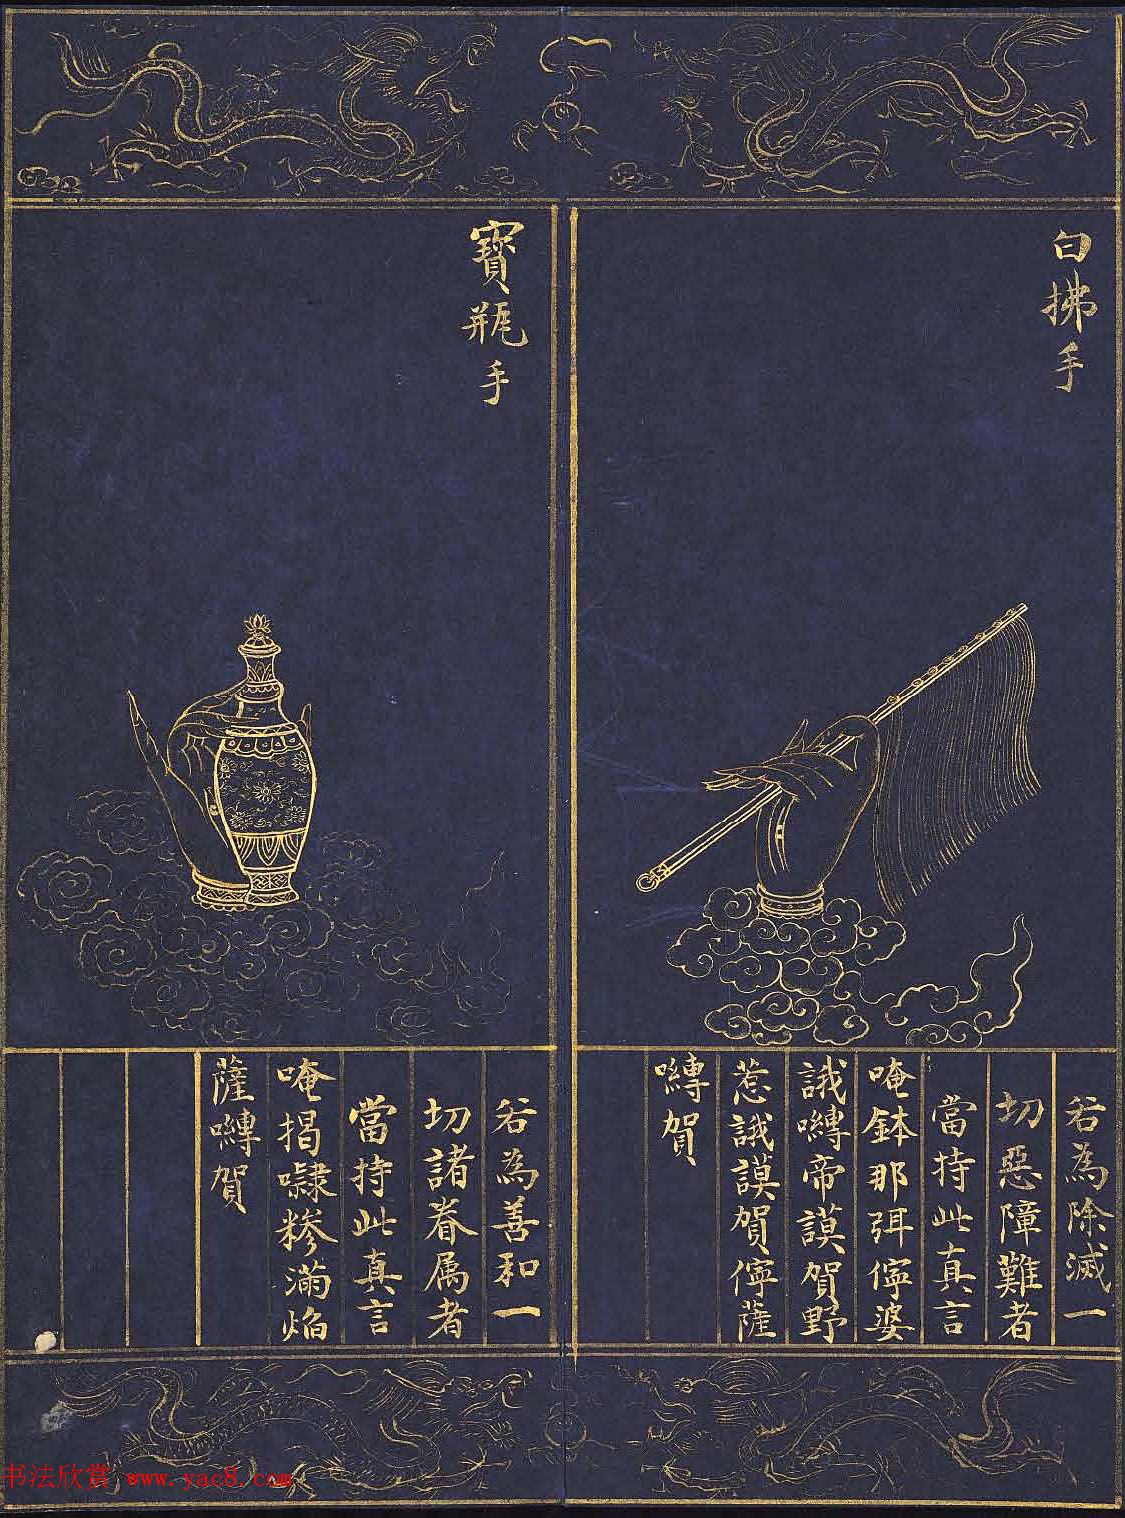 白拂手
若為除滅一
切惡障難者
當持此真言
唵鉢那弭儜婆
誐嚩帝謨賀野
惹誐謨賀儜薩
嚩賀
寶瓶手
若為善和一
切諸眷属者
當持此真言
唵揭㘑糝滿焰
薩嚩賀
书法欣赏 www.yac8.com